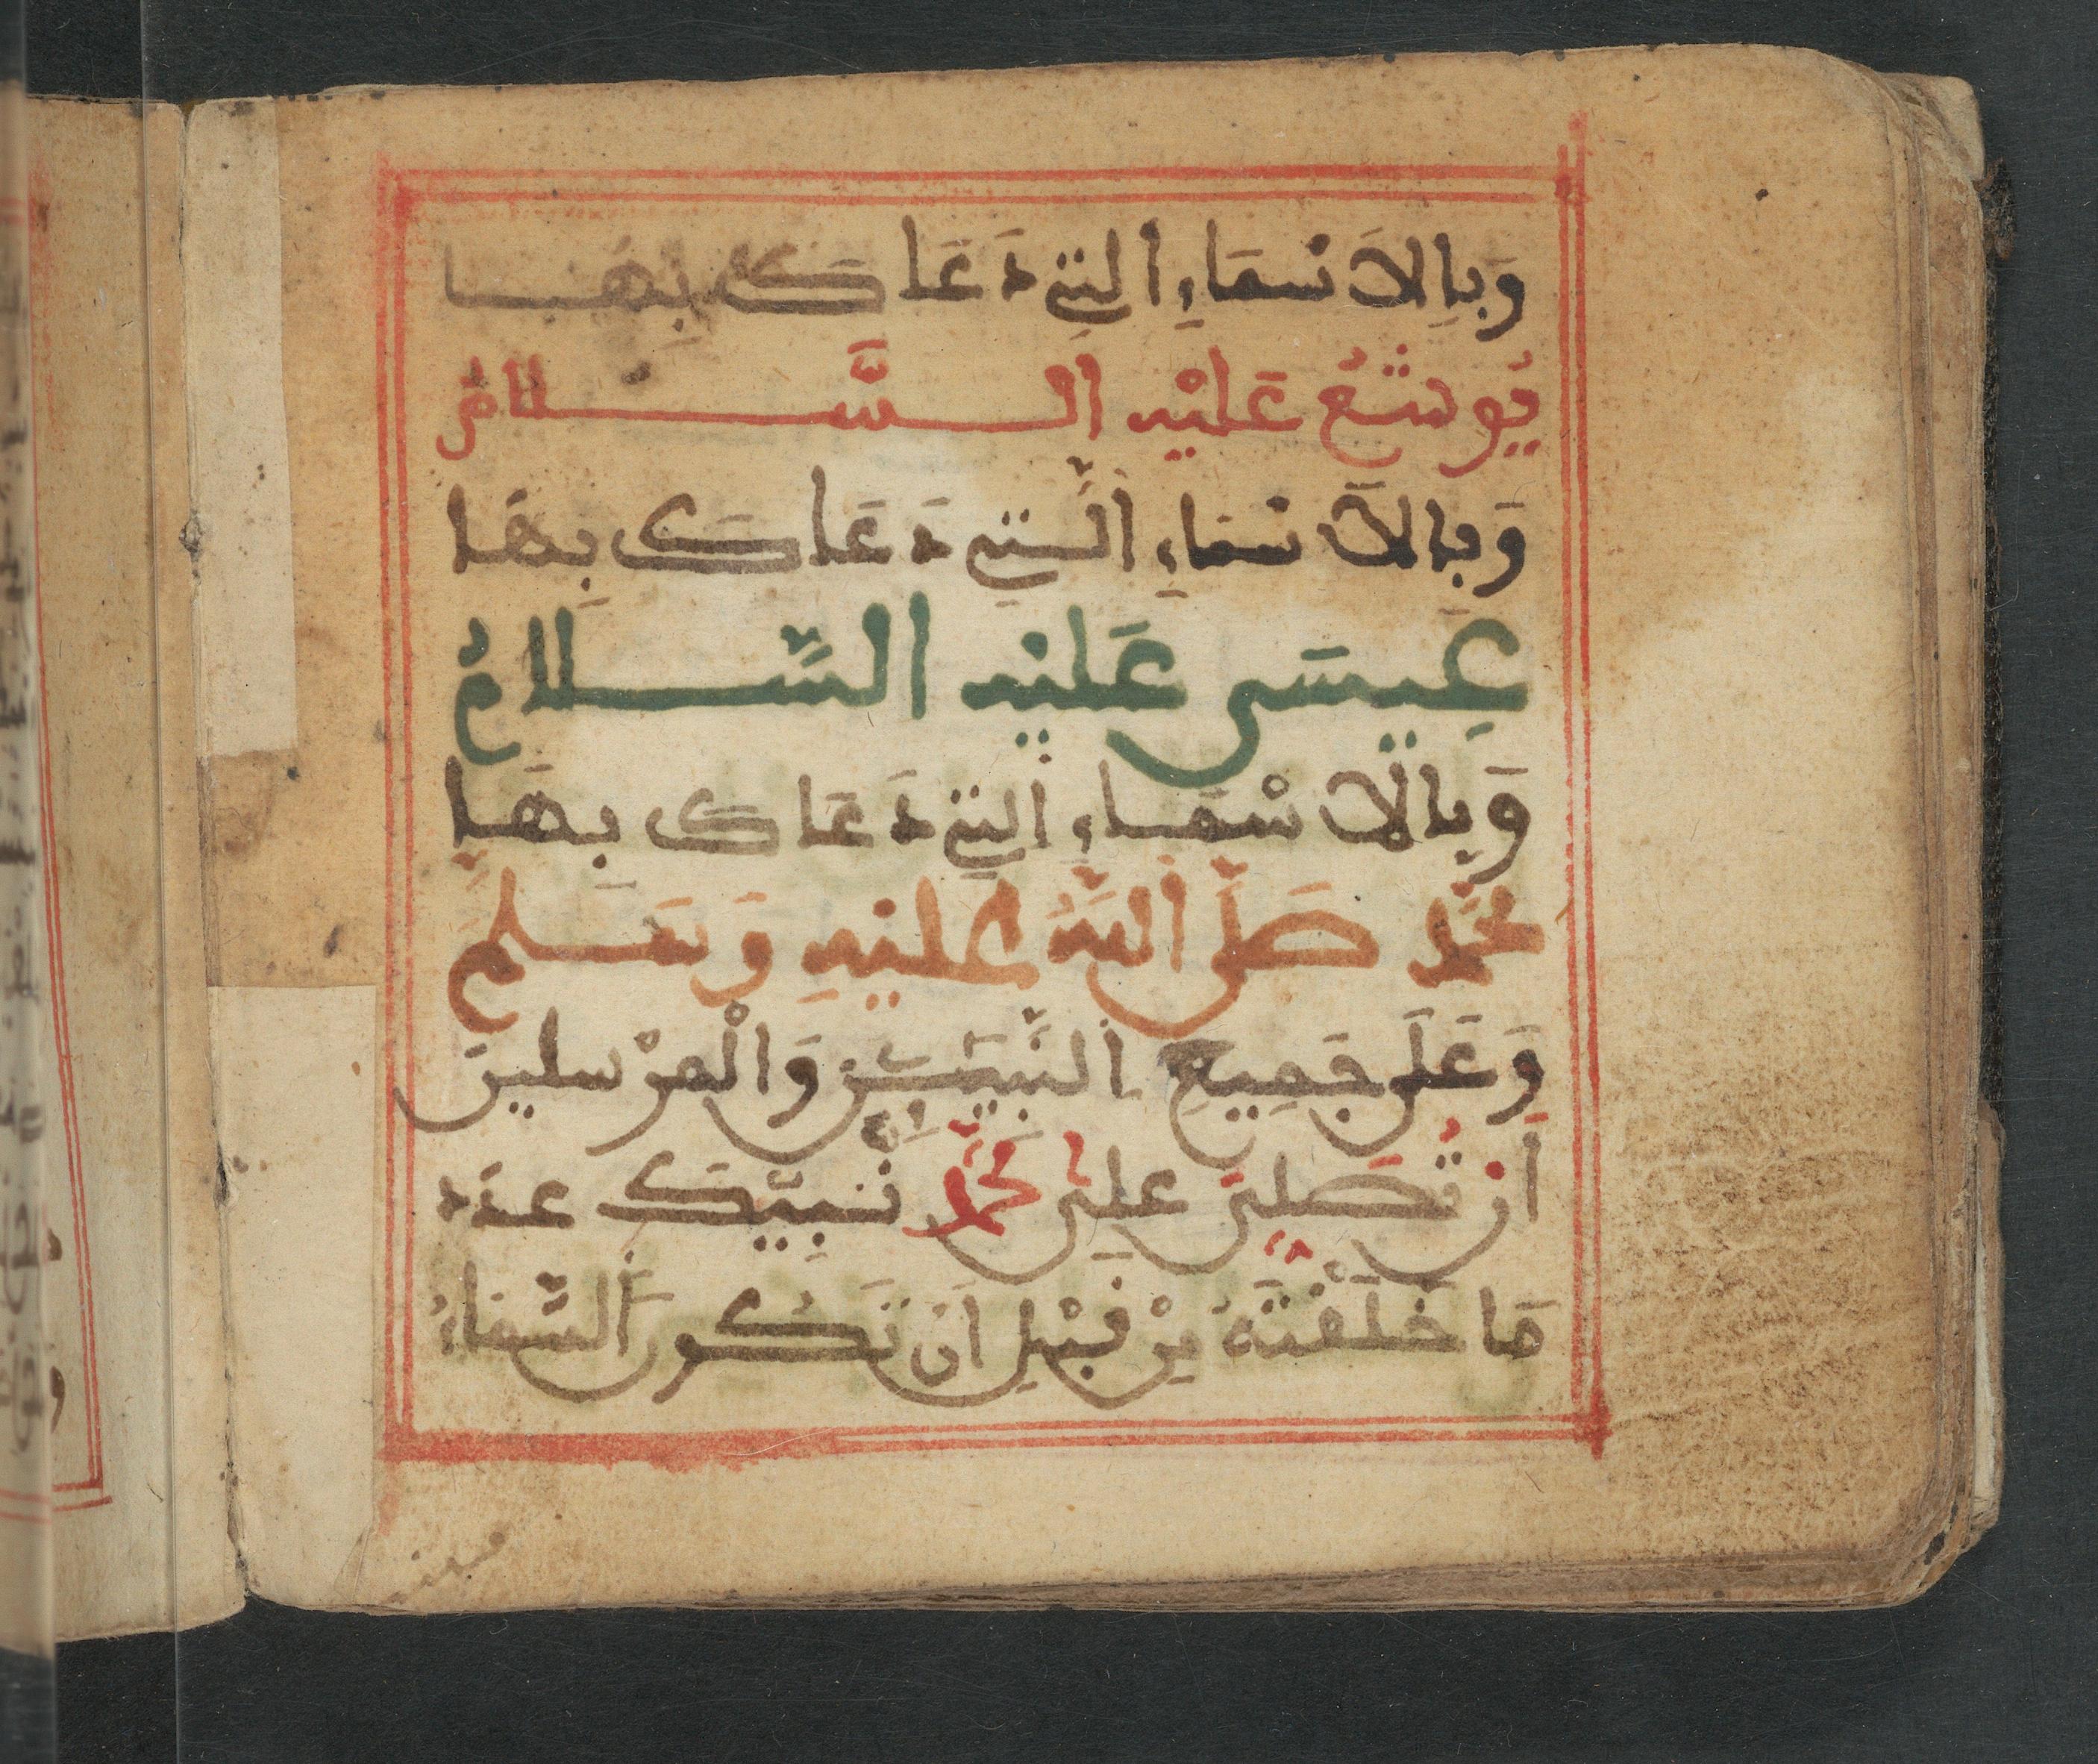 وَبِالاَسْمَاءِ التِي دَعَاكَ بِهَا
يُوشَعُ عَلَيْهِ السَّلَامُ
وَبِالاَسْمَاءِ الَّتِي دَعَاكَ بِهَا
عِيسَى عَلَيْهِ السَّلَامُ
وَبِالاَسْمَاءِ التِي دَعَاكَ بِهَا
مُحَمَّد صَلَّى اللَّهُ عَلَيْهِ وَسَلَّمَ
وَعَلَى جَمِيعِ النَّبِيِّينَ وَالْمُرْسَلِينَ
أَن تُصَلِّىَ عَلَى مُحَمَّدٍ نَبِيِّكَ عَدَدَ
مَا خَلَقْتَهُ مِنْ قَبْلِ أَن تَكُونَ السَّمَاءُ